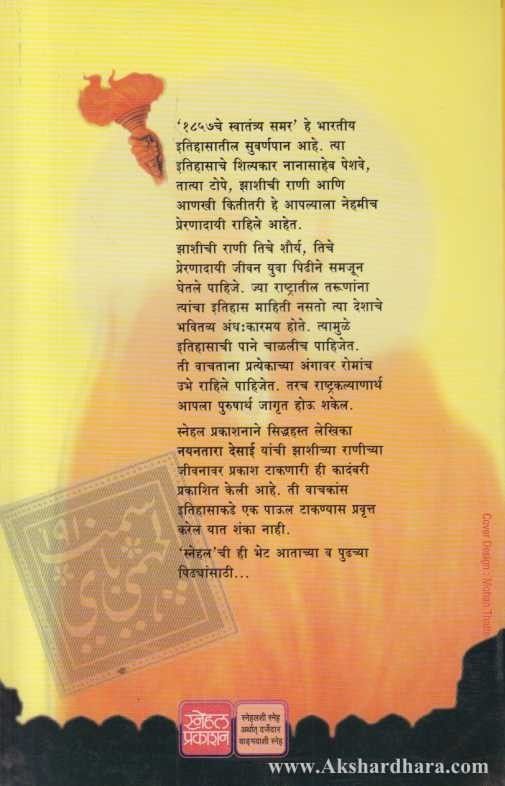 ‘१८५७चे स्वातंत्र्य समर’ हे भारतीय
इतिहासातील सुवर्णपान आहे. त्या
इतिहासाचे शिल्पकार नानासाहेब पेशवे,
तात्या टोपे, झाशीची राणी आणि
आणखी कितीतरी हे आपल्याला नेहमीच
प्रेरणादायी राहिले आहेत.
झाशीची राणी तिचे शौर्य, तिचे
प्रेरणादायी जीवन युवा पिढीने समजून
घेतले पाहिजे. ज्या राष्ट्रातील तरूणांना
त्यांचा इतिहास माहिती नसतो त्या देशाचे
भवितव्य अंध:कारमय होते. त्यामुळे
इतिहासाची पाने चाळलीच पाहिजेत.
ती वाचताना प्रत्येकाच्या अंगावर रोमांच
उभे राहिले पाहिजेत. तरच राष्ट्रकल्याणार्थ
आपला पुरुषार्थ जागृत होऊ शकेल.
स्नेहल प्रकाशनाने सिद्धहस्त लेखिका
नयनतारा देसाई यांची झाशीच्या राणीच्या
जीवनावर प्रकाश टाकणारी ही कादंबरी
प्रकाशित केली आहे. ती वाचकांस
इतिहासाकडे एक पाऊल टाकण्यास प्रवृत्त
करेल यात शंका नाही.
‘स्नेहल’ची ही भेट आताच्या व पुढच्या
पिढ्यांसाठी...
Cover Design : Mohan
स्नेहल
प्रकाशन
स्नेहलशी स्नेह
अर्थात् दर्जेदार
वाङ्मयाशी स्नेह
www.Akshardhara.com